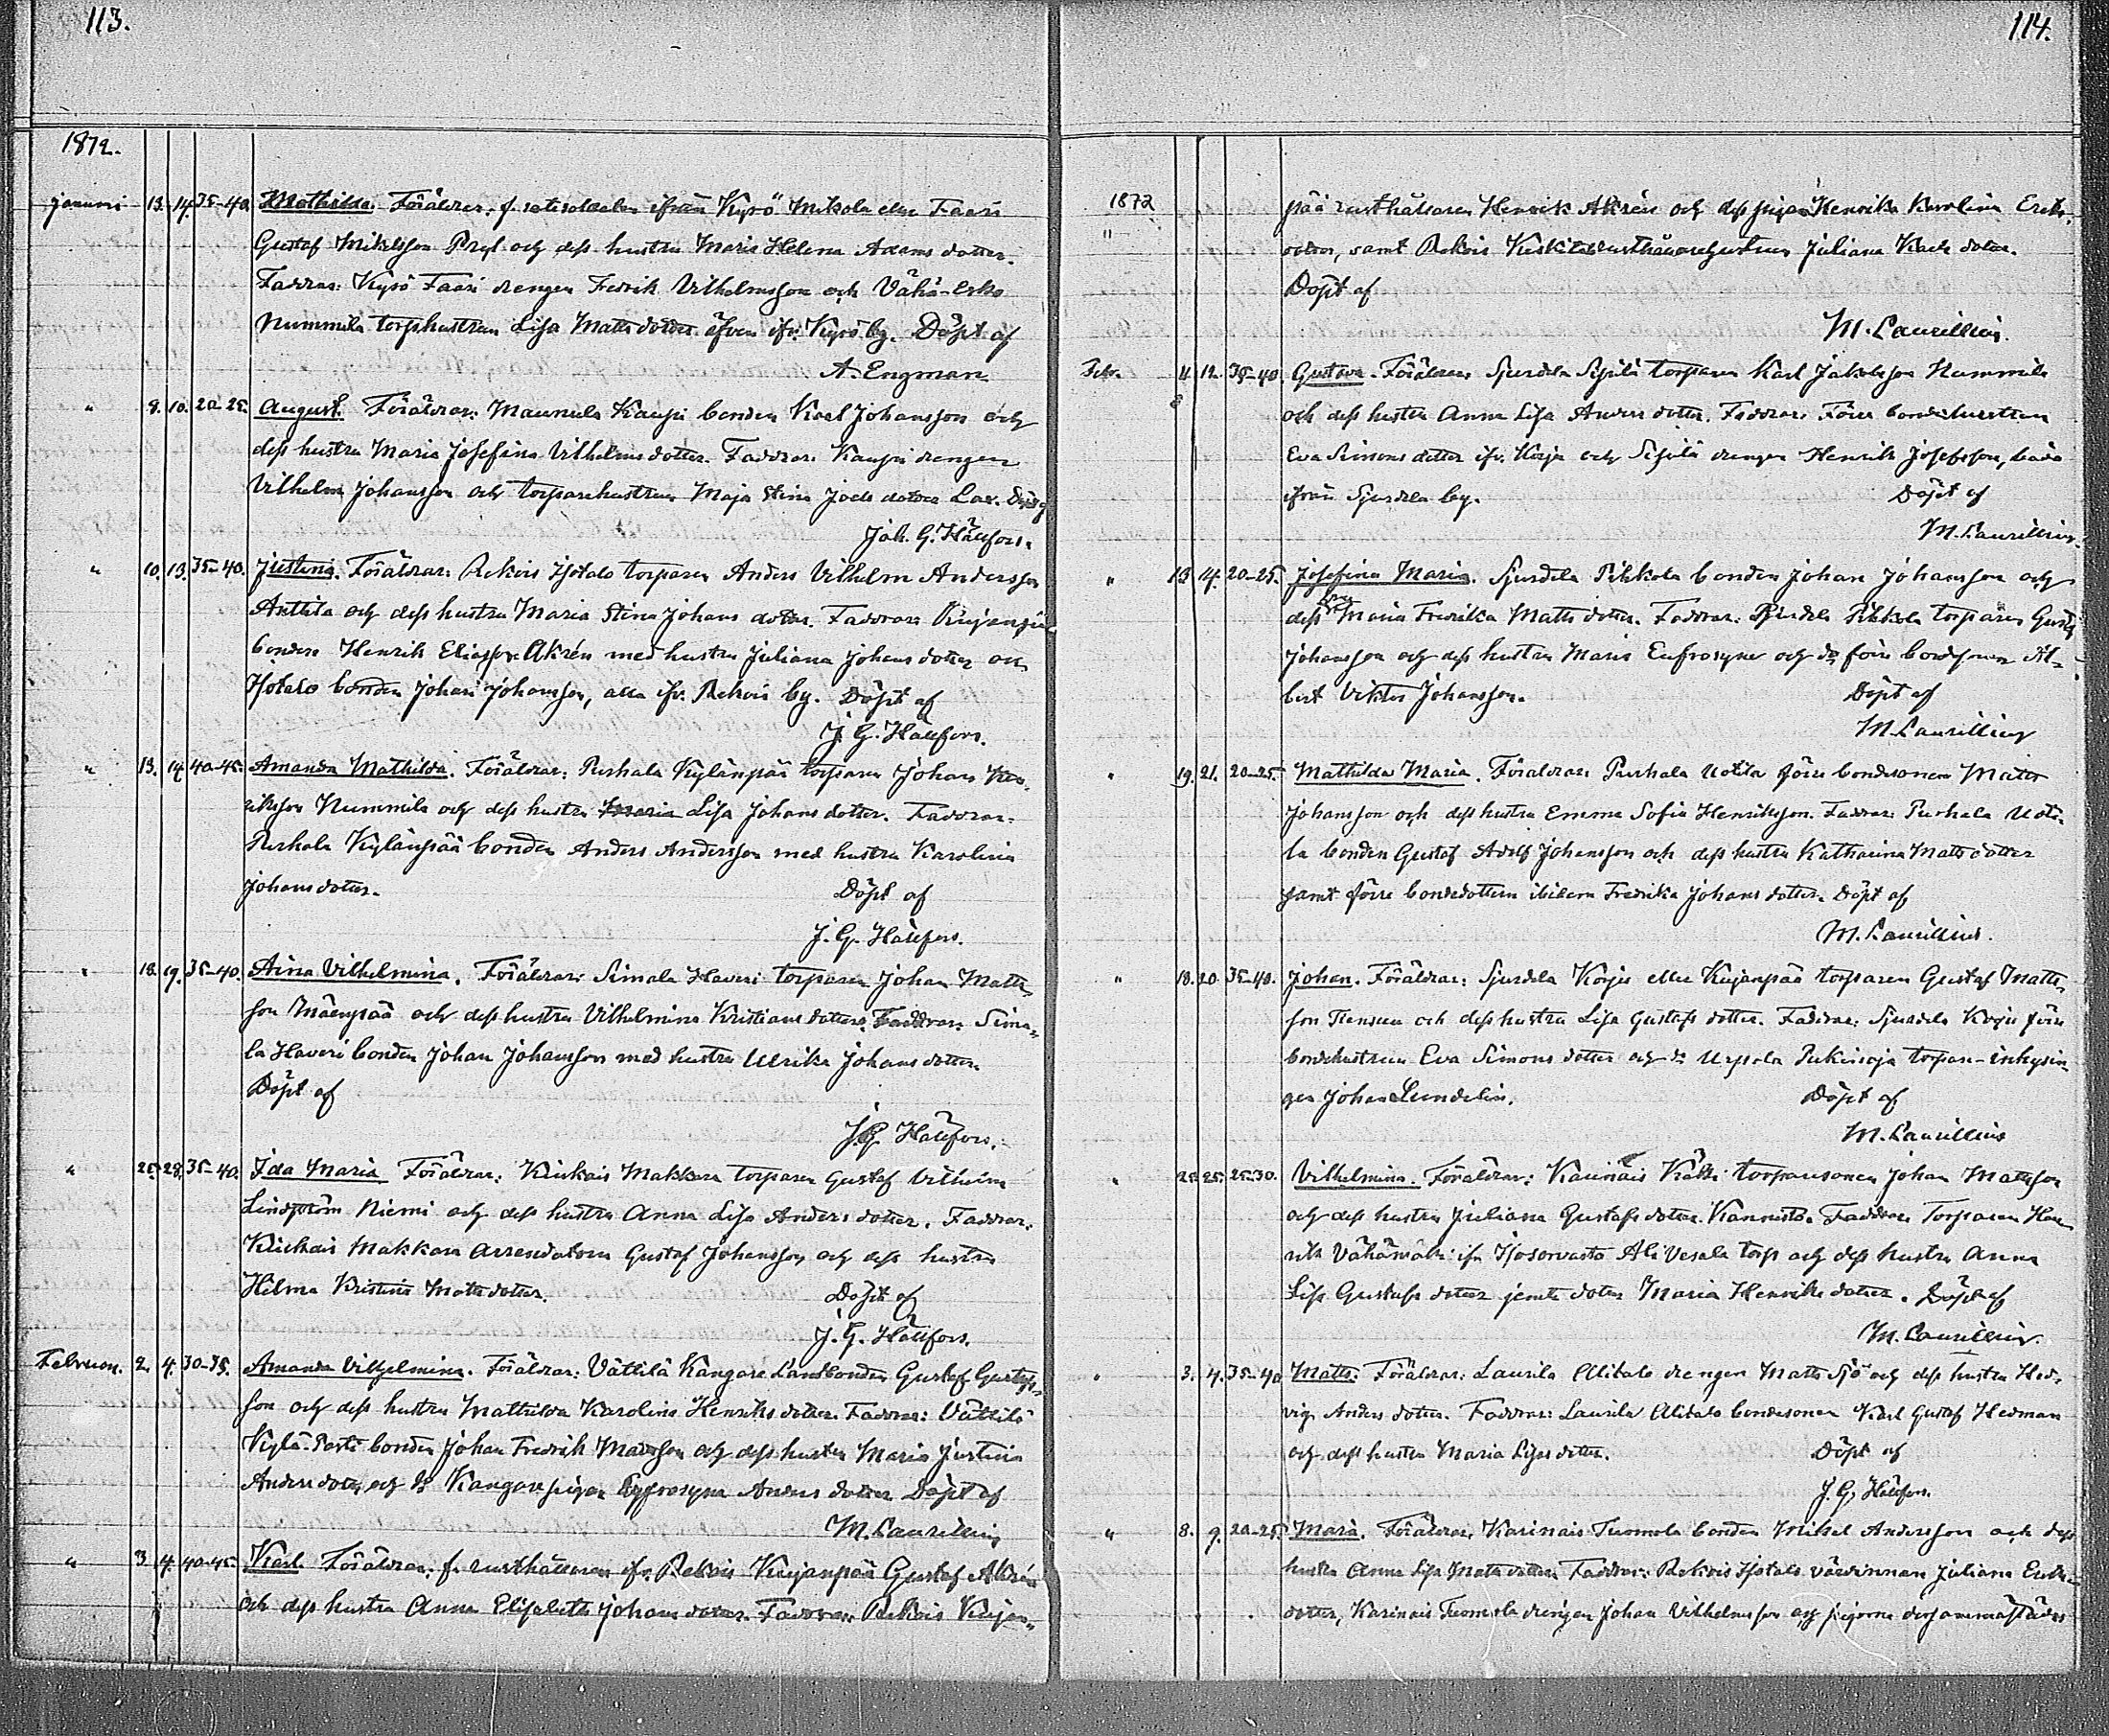 113.
1872.
januari 13. 14. 35-40. Mathilda. Föräldrar: f. ifrån Kyrö Mikola eller Faari
Gustaf Mikelsson Pryl och dess hustru Maria Helena Adams dotter.
Faddrar: Kyrö Faari drengen Fredrik Vilhelmsson och Vähä-Erko
Nummila torphustrun Lisa Matts dotter äfven ifr. Kyrö by. Döpt af
A. Engman.
" 9. 10. 20-25. August. Föräldrar: Maunula Kaupi bonden Karl Johansson och
dess hustru Maria Josefina Vilhelms dotter. Faddrar: Kaupi drengen
Vilhelm Johansson och torparehustrun Maja Stina Joels dotter
Joh. G. Hällfors.
" 10. 13. 35-40. Justina. Föräldrar: Rekois Isotalo torparen Anders Vilhelm Andersson
Anttila och dess hustru Maria Stina Johans dotter. Faddrar: Kujanpää
bonden Henrik Eliasson Akrén med hustru Juliana Johans dotter och
Isotalo bonden Johan Johansson, alla ifr. Rekois by. Döpt af
J. G. Hällfors.
" 13. 14. 40-45. Amanda Mathilda. Föräldrar: Purhala Kylänpää torparen Johan Hen-
riksson Nummila och dess hustru Maria Lisa Johans dotter. Faddrar:
Purhala Kylänpää bonden Anders Andersson med hustru Karolina
Johans dotter. Döpt af
J. G. Hällfors.
" 18. 19. 35-40. Aina Vilhelmina. Föräldrar: Simala Haveri torparen Johan Matts-
son Mäenpää och dess hustru Vilhelmina Kristians dotter. Faddrar: Sima-
la Haveri bonden Johan Johansson med hustru Ulrika Johans dotter.
Döpt af
J. G. Hällfors.
" 25. 28. 35-40. Ida Maria Föräldrar: Makkara torparen Gustaf Vilhelm
Lindström Niemi och dess hustru Anna Lisa Anders dotter. Faddrar:
Makkara arrendatorn Gustaf Johansson och dess hustru
Hilma Kristina Matts dotter. Döpt af
J. G. Hällfors.
Februari. 2. 4. 30-35. Amanda Vilhelmina. Föräldrar: Vättilä Kangare Landbonden Gustaf Gustafs-
son och dess hustru Mathilda Karolina Henriks dotter. Faddrar: Vättilä
Kylä-Perti bonden Johan Fredrik Mattsson och dess hustru Maria Justina
Anders dotter och Kangare pigan Eufrosyna Anders dotter Döpt af
M. Laurellius
" 3. 4. 40-45. Karl Föräldrar: f. rusthållaren ifr. Rekois Kujanpää Gustaf Akrén
och dess hustru Anna Elisabeth Johans dotter. Faddrar: Rekois Kujan-
114.
1872
pää rusthållaren Henrik Akrén och dess pigan Henrika Karolina Eriks-
dotter, samt Rekois Keskitalo rusthållarehustrun Juliana dotter.
Döpt af
M. Laurellius.
Febr. 11. 12. 35-40. Gustava. Föräldrar: Sjurdela Sipilä torparen Karl Jakobsson Nummila
och dess hustru Anna Lisa Anders dotter. Faddrar: Förre bondehustrun
Eva Simons dotter ifr. Korju och Sipilä drengen Henrik Josefsson, båda
ifrån Sjurdela by. Döpt af
M. Laurellius.
" 13 14. 20-25. Josefina Maria. Sjurdela Pikkola bonden Johan Johansson och
dess hru Maria Fredrika Matts dotter. Faddrar: Sjurdela Pikkola torparen Gustaf
Johansson och dess hustru Maria Eufrosyne och do förre bondsonen Al-
bert Viktor Johansson. Döpt af
M. Laurellius
" 19. 21. 20-25. Mathilda Maria. Föräldrar: Purhala Uotila förre bondesonen Matts
Johansson och dess hustru Emma Sofia Henriksson. Faddrar: Purhala Uoti-
la bonden Gustaf Adolf Johansson och dess hustru Katharina Matts dotter
samt förre bondedottern ibidem Fredrika Johans dotter. Döpt af
M. Laurellius.
" 18. 20. 35-40. Johan. Föräldrar: Sjurdela Korju eller Kujanpää torparen Gustaf Matts-
son och dess hustru Lisa Gustafs dotter. Faddrar: Sjurdela Korju förre
bondehustrun Eva Simons dotter och do Urpola torpare-inhysin-
gen Johan Lundelin. Döpt af
M. Laurellius
" 25. 25. 25-30. Vilhelmina. Föräldrar: Karinais torparesonen Johan Mattsson
och dess hustru Juliana Gustafs dotter. Faddrar: Torparen Hen-
rik Vähämäki ifr. Isosorvasto Ali Vesala torp och dess hustru Anna
Lisa Gustafs dotter jemte dotter Maria Henriks dotter. Döpt af
M. Laurellius.
" 3. 4. 35-40 Matts. Föräldrar: Laurila Alitalo drengen Matts Sjö och dess hustru Hed-
vig Anders dotter. Faddrar: Laurila Alitalo bondesonen Karl Gustaf Hedman
och dess hustru Maria Lisas dotter. Döpt af
J. G. Hällfors.
" 8. 9. 20-25. Maria. Föräldrar: Karinais Tuomola bonden Mikel Andersson och dess
hustru Anna Lisa Matts dotter. Faddrar: Rekois Isotalo värdinnan Juliana Eriks-
dotter, Karinais Tuomola drengen Johan Vilhelmsson och pigorna dersammastädes